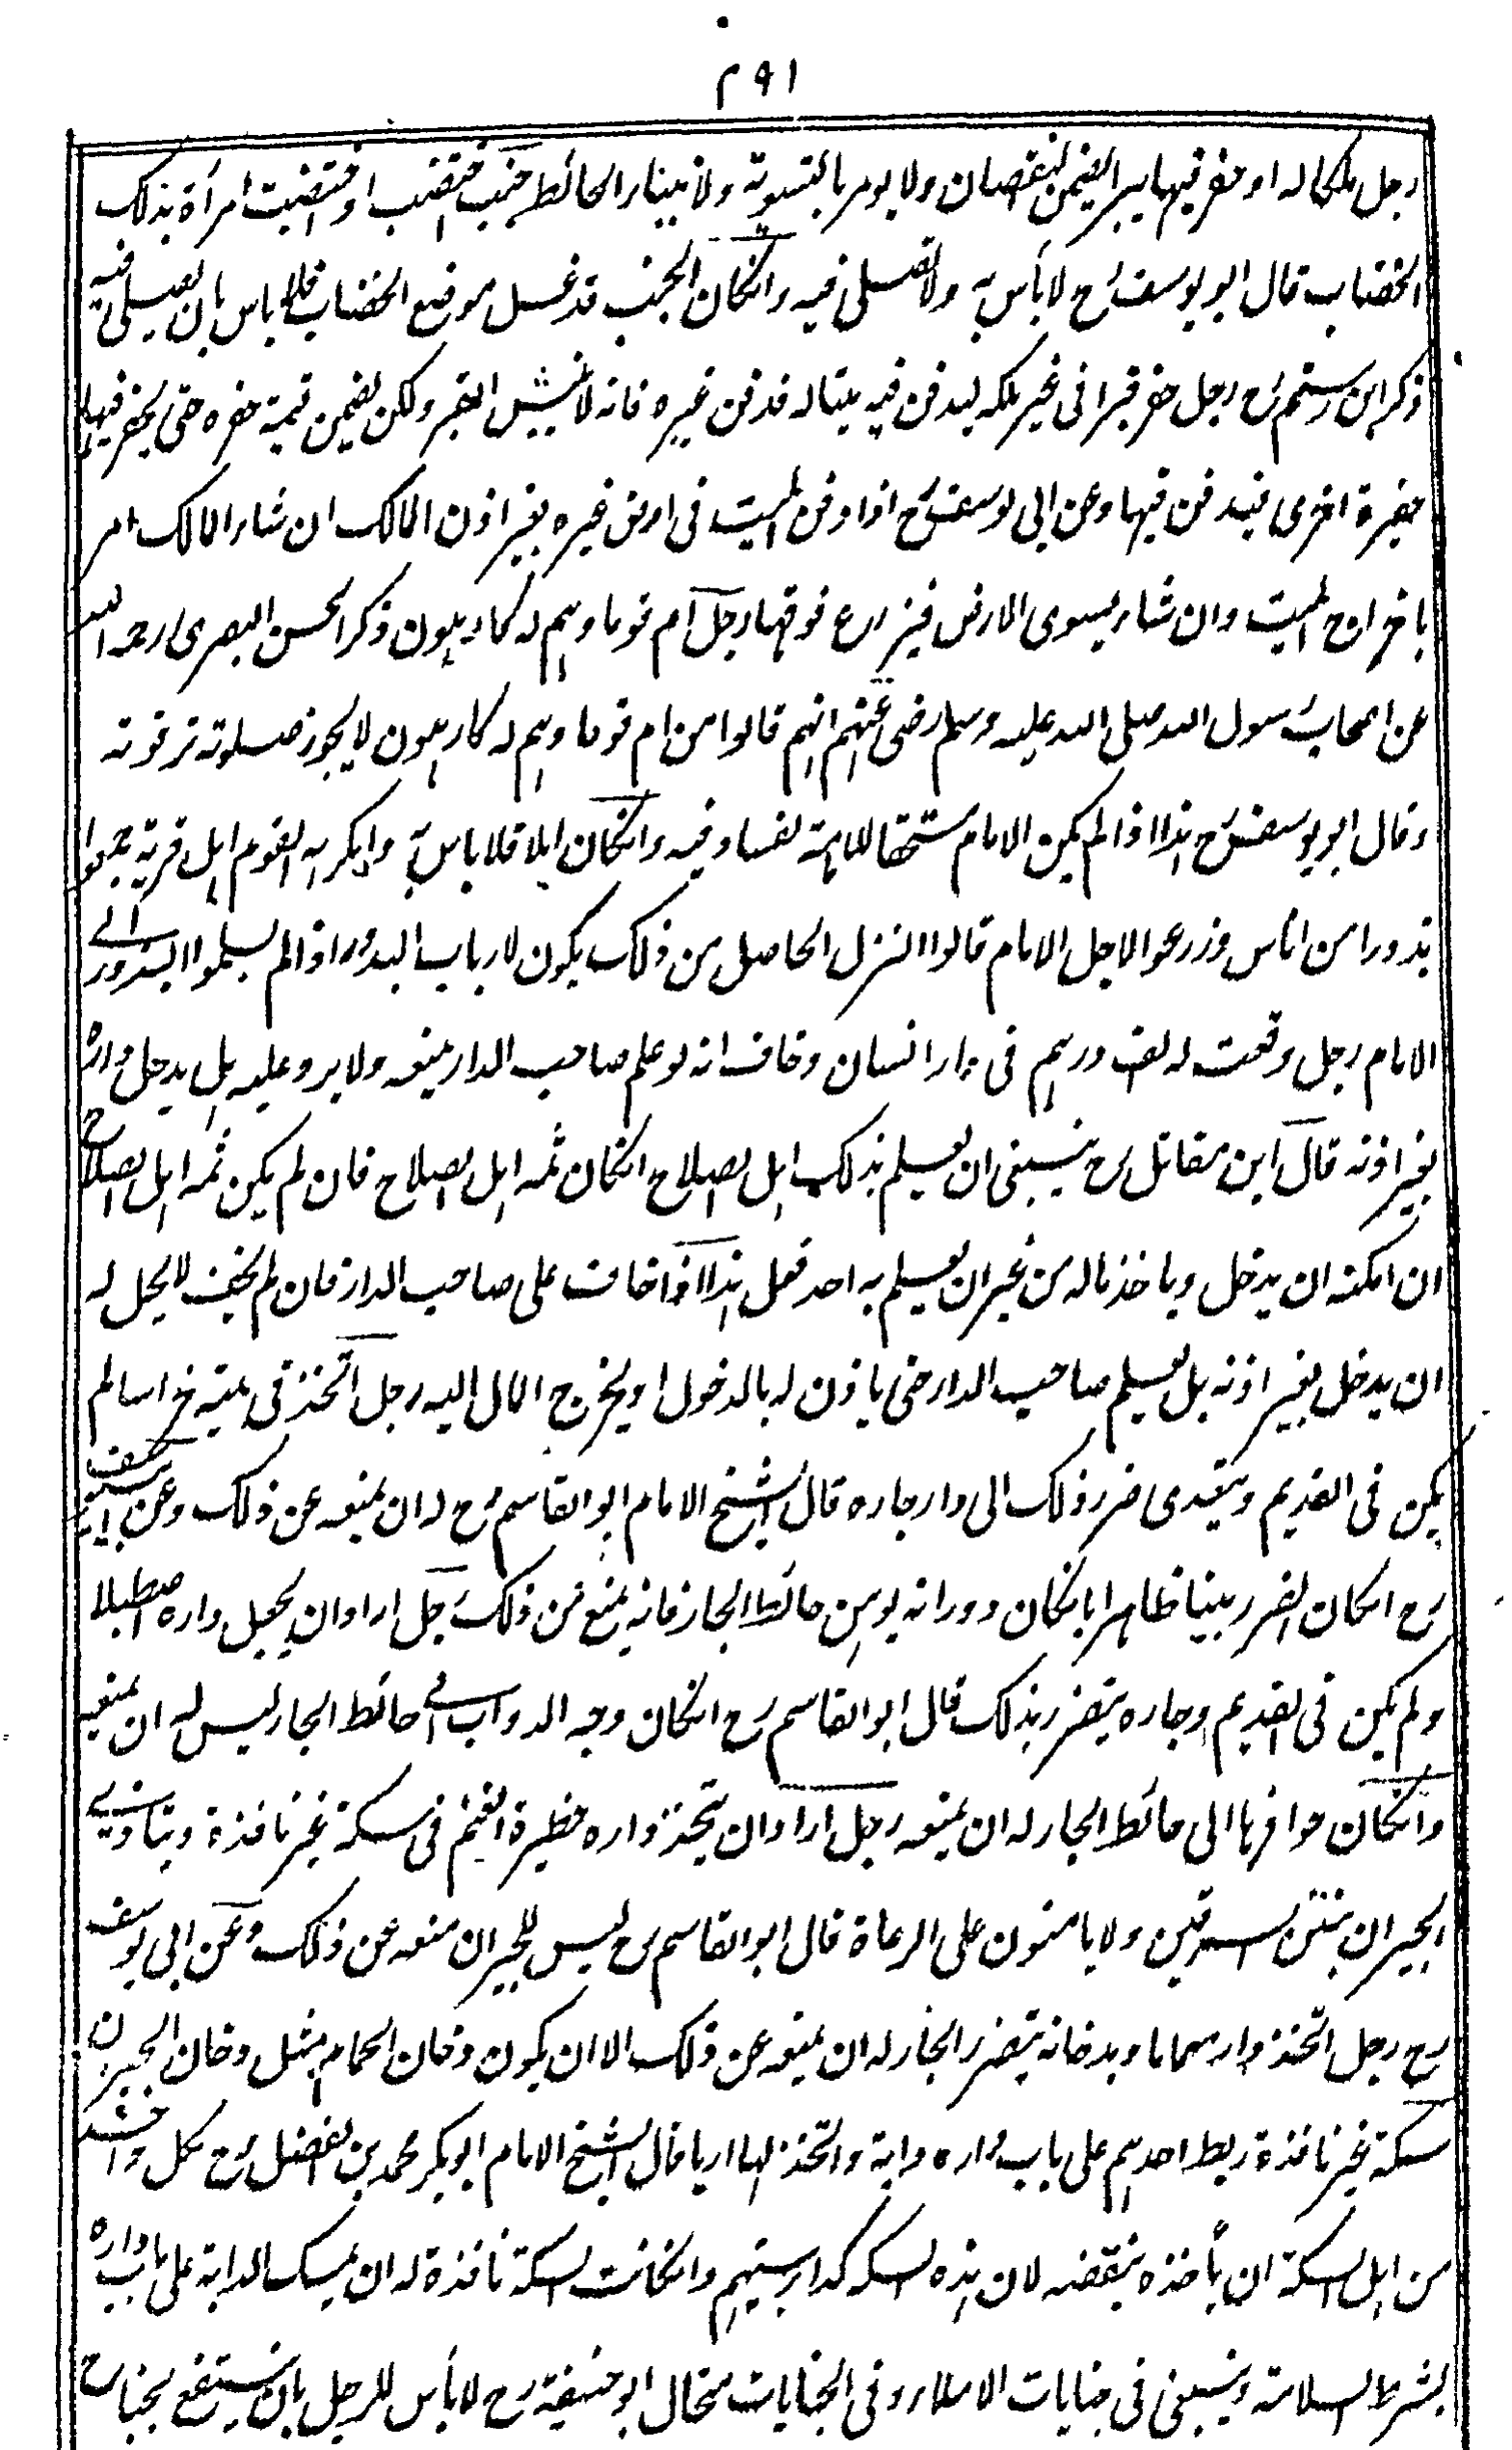 ٢٩١
رجل ملكا له او حفر فيها بيرا يضمن النقصان ولا يومر بالتسوية ولا ببناء الحائط جنب اختضب او اختضبت امرأة بذلك
الخضاب قال ابو يوسف رح لا بأس به ولا تصلى فيه وانكان الجنب قد غسل موضع الخضاب فلا باس بان يصلى فيه
ذكر ابن رستم رح رجل حفر قبرا فى غير ملكه ليدفن فيه ميتا له فدفن غيره فانه لا ينبش القبر ولكن يضمن قيمة حفره حتى يحفر فيها
حفيرة اخرى فيدفن فيها وعن ابى يوسف رح اذا دفن الميت فى ارض غيره بغير اذن المالك ان شاء المالك امر
باخراج الميت وان شاء يسوى الارض فيزرع فوقها رجل ام قوما وهم له كارهون ذكر الحسن البصرى رحمه الله
عن اصحاب رسول الله صلى الله عليه وسلم رضى عنهم انهم قالوا من ام قوما وهم له كارهون لا يجوز صلوته ترقوته
وقال ابو يوسف رح هذا اذا لم يكن الامام مستحقا للامامة لفساد فيه وانكان اهلا فلا باس به وان كره القوم اهل قرية جمعوا
بذورا من الناس وزرعوا لاجل الامام قالوا النزل الحاصل من ذلك يكون لارباب البذور اذا لم يسلموا البذور الى
الامام رجل وقعت له الف درهم فى دار انسان وخاف انه لو علم صاحب الدار منعه ولا يرد عليه هل يدخل داره
بغير اذنه قال ابن مقاتل رح ينبغى ان يعلم بذلك اهل الصلاح انكان ثمه اهل الصلاح فان لم يكن ثمه اهل الصلاح
ان امكنه ان يدخل وياخذ ماله من غير ان يعلم به احد فعل هذا اذا خاف على صاحب الدار فان لم يخف لا يحل له
ان يدخل بغير اذنه بل يعلم صاحب الدار حتى ياذن له بالدخول او يخرج المال اليه رجل اتخذ فى بيته خراسا لم
يكن فى القديم ويتعدى ضرر ذلك الى دار جاره قال الشيخ الامام ابو القاسم رح له ان يمنعه عن ذلك وعن ابى يوسف
رح انكان الضرر بينا ظاهرا بانكان دورانه يوهن حائط الجار فانه يمنع من ذلك رجل اراد ان يجعل داره اصطبلا
ولم يكن فى القديم وجاره يتضرر بذلك قال ابو القاسم رح انكان وجه الدواب الى حائط الجار ليس له ان يمنعه
وانكان حوافرها الى حائط الجار له ان يمنعه رجل اراد ان يتخذ داره حظيرة الغنم فى سكة غير نافذة ويتاذى
الجيران بنتن السرقين ولا يامنون على الرعاة قال ابو القاسم رح ليس للجيران منعه عن ذلك وعن ابى يوسف
رح رجل اتخذ داره حماما وبدخانه يتضرر الجار له ان يمنعه عن ذلك الا ان يكون دخان الحمام مثل دخان الجيران
سكة غير نافذة ربط احدهم على باب داره دابة واتخذ لها اريا قال الشيخ الامام ابو بكر محمد بن الفضل رح لكل واحد
من اهل السكة ان يأخذه بنقضه لان هذه السكه كدار بينهم وانكانت السكة نافذة له ان يمسك الدابة على باب داره
بشرط السلامة وينبغى فى جنايات الاملاء وفى الجنايات قال ابو حنيفة رح لا بأس للرجل بان ينتفع بجناح